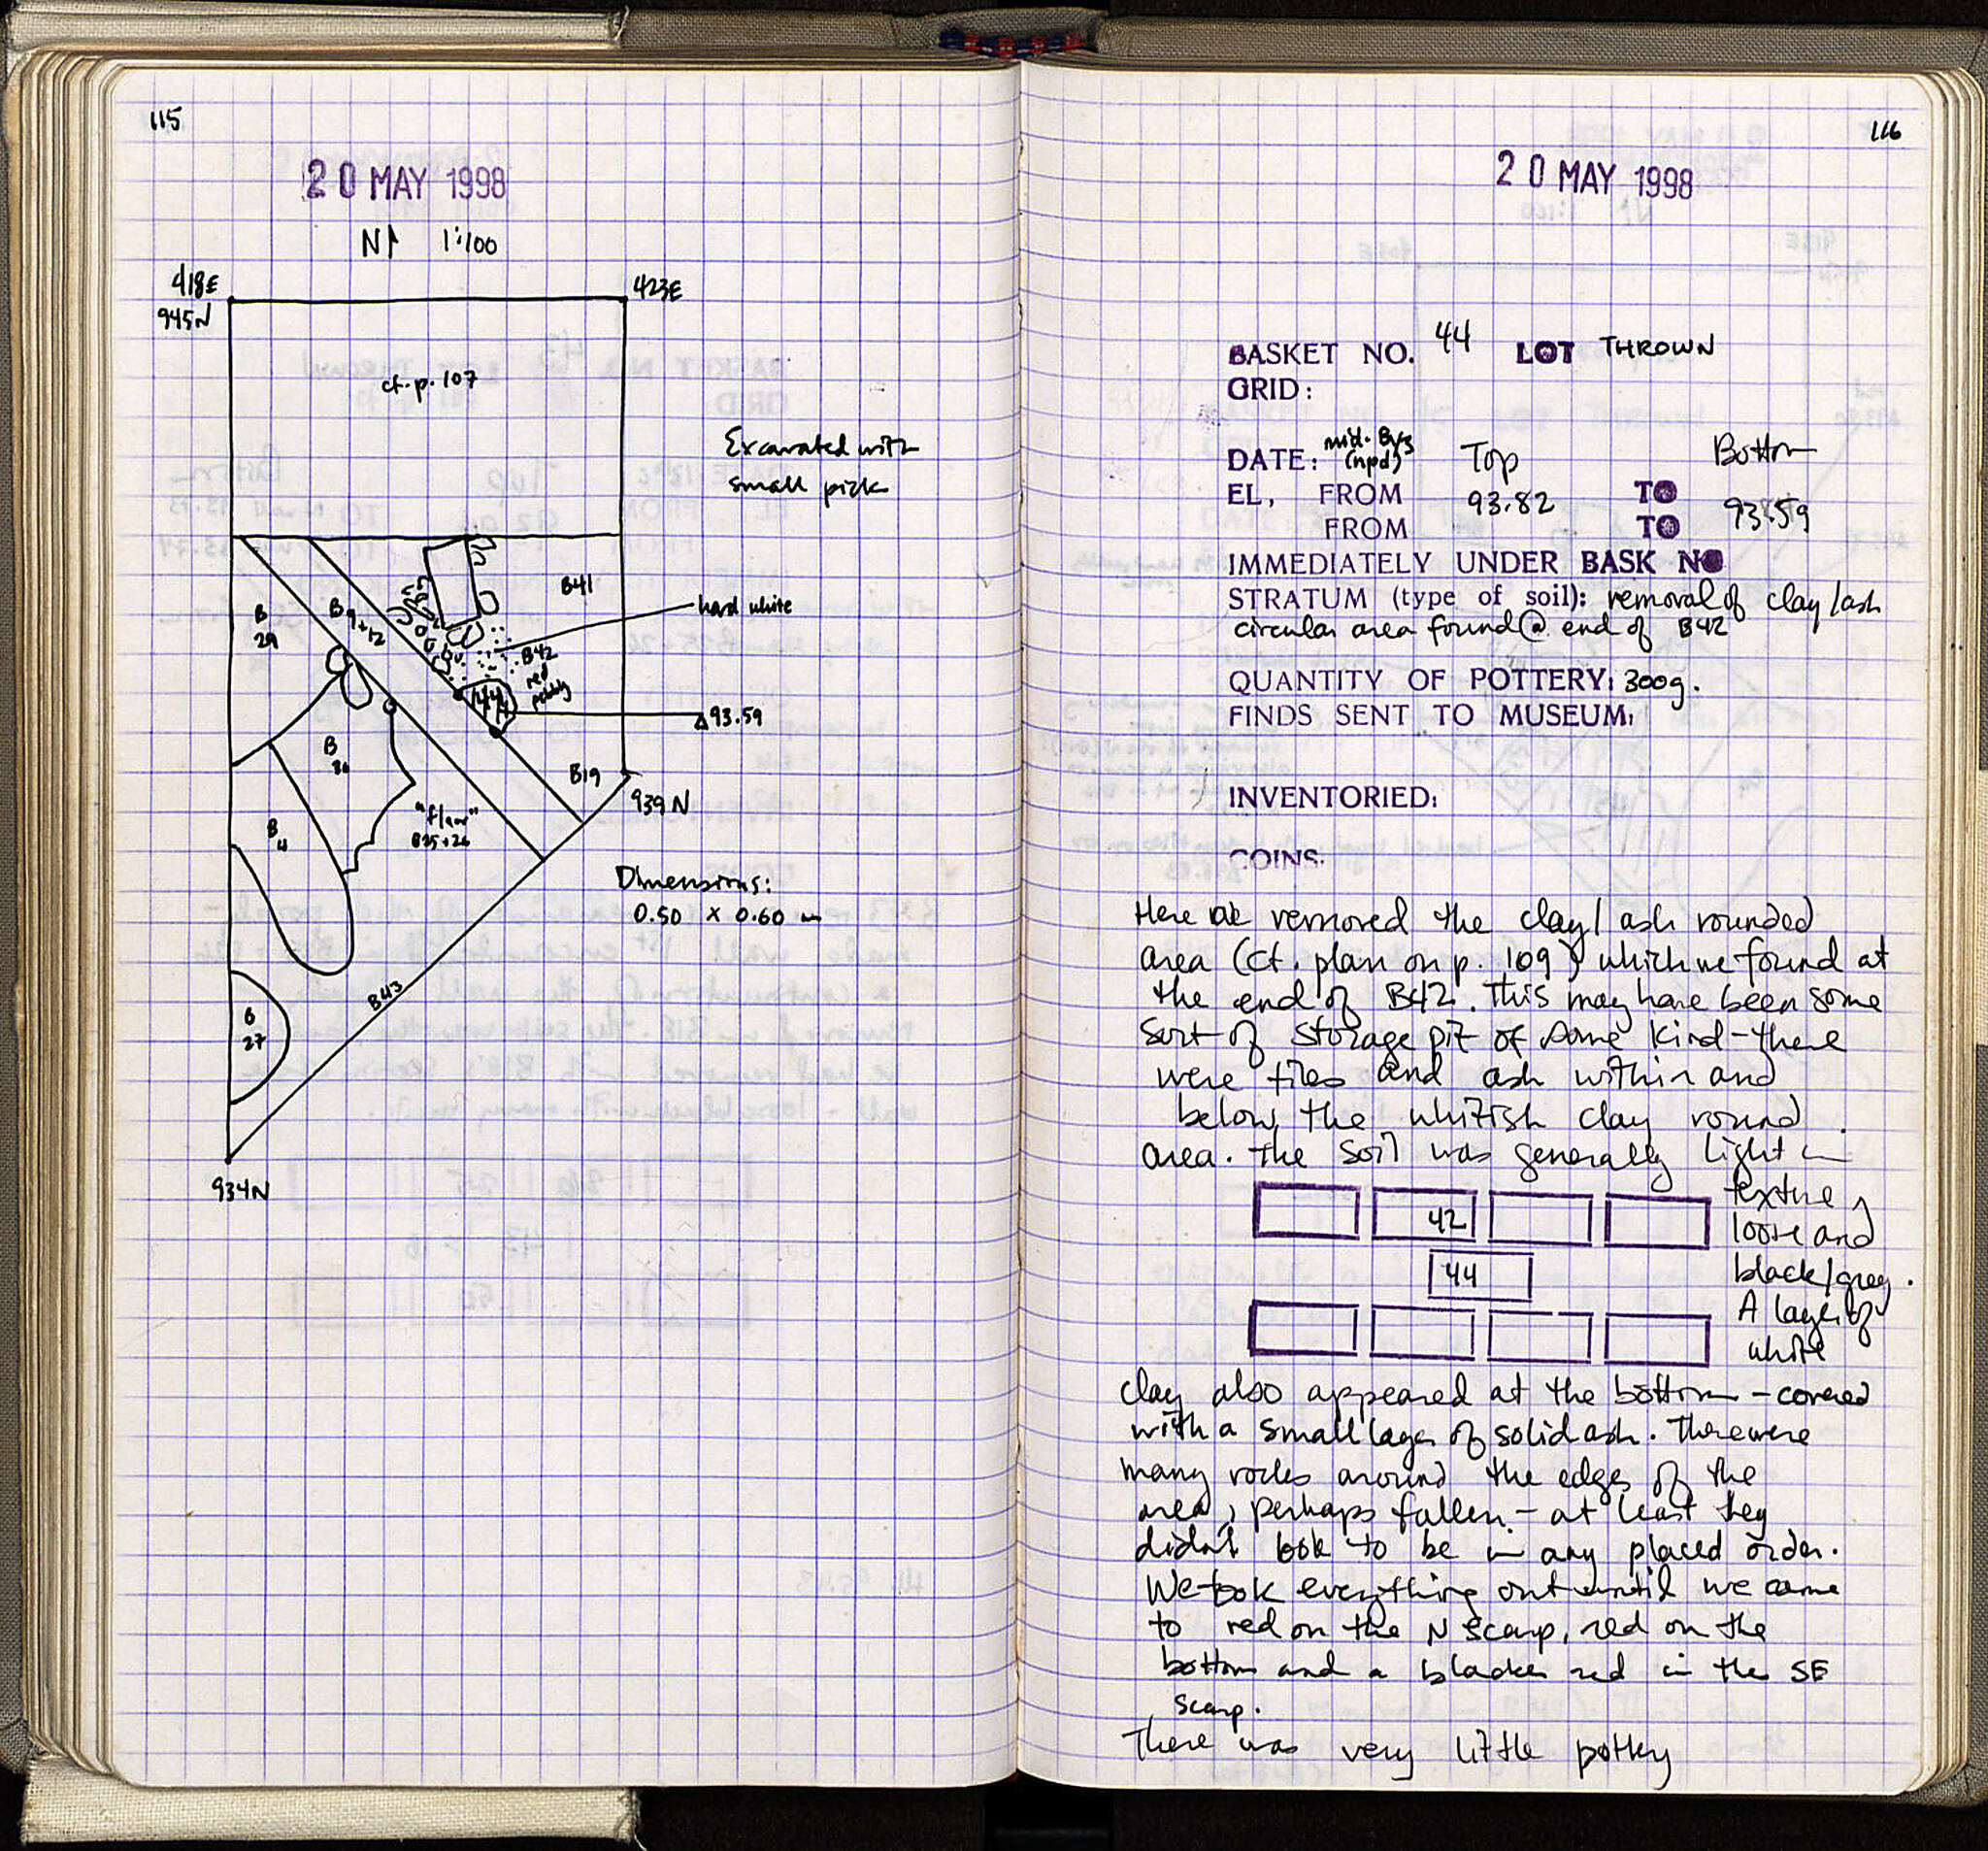 115
20 MAY 1998
N 1:100
418E
945N
423E
cf. p. 107
Excavated with
small pick
B41
hard white
B
29
B9+12
B42
red
pebbly
44
93.59
B19
939N
B
30
"floor"
B25+26
B
11
Dimensions:
0.50 x 0.60 m
B43
B
27
934N
116
20 MAY 1998
BASKET NO. 44 LOT THROWN
GRID:
DATE: mid. Byz
(npd)
Top
Bottom
EL, FROM 93.82 TO 93.59
FROM TO
IMMEDIATELY UNDER BASK NO
STRATUM (type of soil): removal of clay/ash
circular area found @ end of B42
QUANTITY OF POTTERY: 300g.
FINDS SENT TO MUSEUM:
INVENTORIED:
COINS:
Here we removed the clay/ash rounded
area (cf. plan on p. 109) which we found at
the end of B42. This may have been some
sort of storage pit of some kind - there
were tiles and ash within and
below the whitish clay round
area. The soil was generally light in
texture,
loose and
black/grey.
A layer of
white
42
44
clay also appeared at the bottom - covered
with a small layer of solid ash. There were
many rocks around the edges of the
area, perhaps fallen - at least they
didn't look to be in any placed order.
We took everything out until we came
to red on the N scarp, red on the
bottom and a blacker red in the SE
scarp.
There was very little pottery